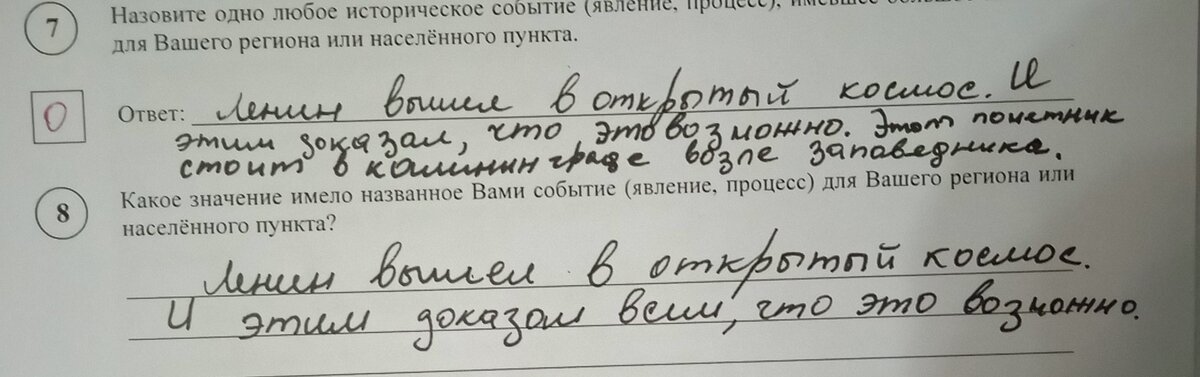 7
Назовите одно любое историческое событие (явление, процесс), имевшее
для Вашего региона или населённого пункта.
0
Ответ: Ленин вышел в открытый космос. И
этим доказал, что это возможно. Этот пометник
стоит в калининграде возле заповедника.
8
Какое значение имело названное Вами событие (явление, процесс) для Вашего региона или
населённого пункта?
Ленин вышел в открытый космос.
И этим доказал всем, что это возможно.